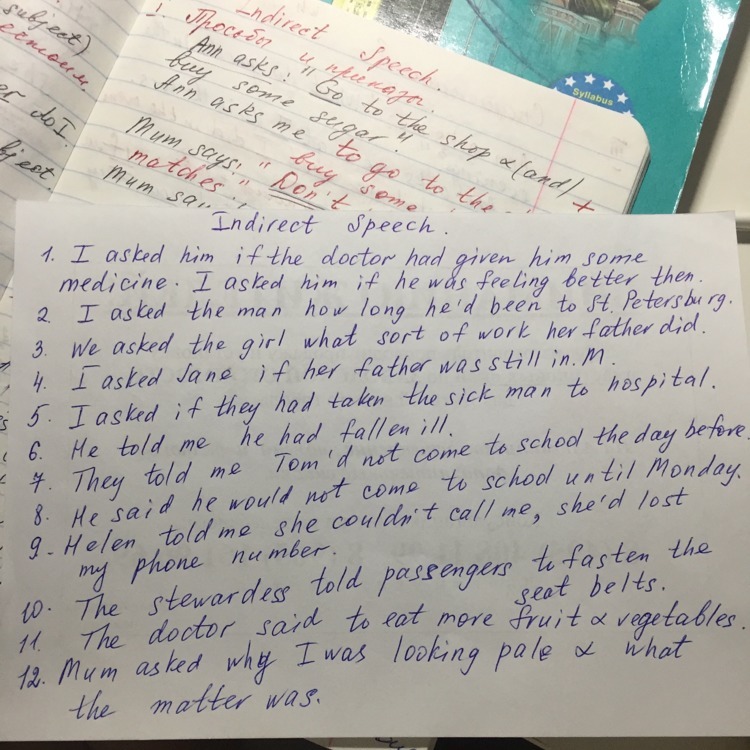 subject)
er do I.
bject.
Indirect Speech.
1. Просьбы и приказы.
Ann asks: "Go to the shop & (and) +
buy some sugar."
Ann asks me to go to the
Mum says: "buy some
matches" "Don't
Mum sa
Syllabus
Indirect Speech.
1. I asked him if the doctor had given him some
medicine. I asked him if he was feeling better then.
2. I asked the man how long he'd been to St. Petersburg.
3. We asked the girl what sort of work her father did.
4. I asked Jane if her father was still in M.
5. I asked if they had taken the sick man to hospital.
6. He told me he had fallen ill.
7. They told me Tom'd not come to school the day before.
8. He said he would not come to school until Monday.
9. Helen told me she couldn't call me, she'd lost
my phone number.
10. The stewardess told passengers to fasten the
seat belts.
11. The doctor said to eat more fruit & vegetables.
12. Mum asked why I was looking pale & what
the matter was.